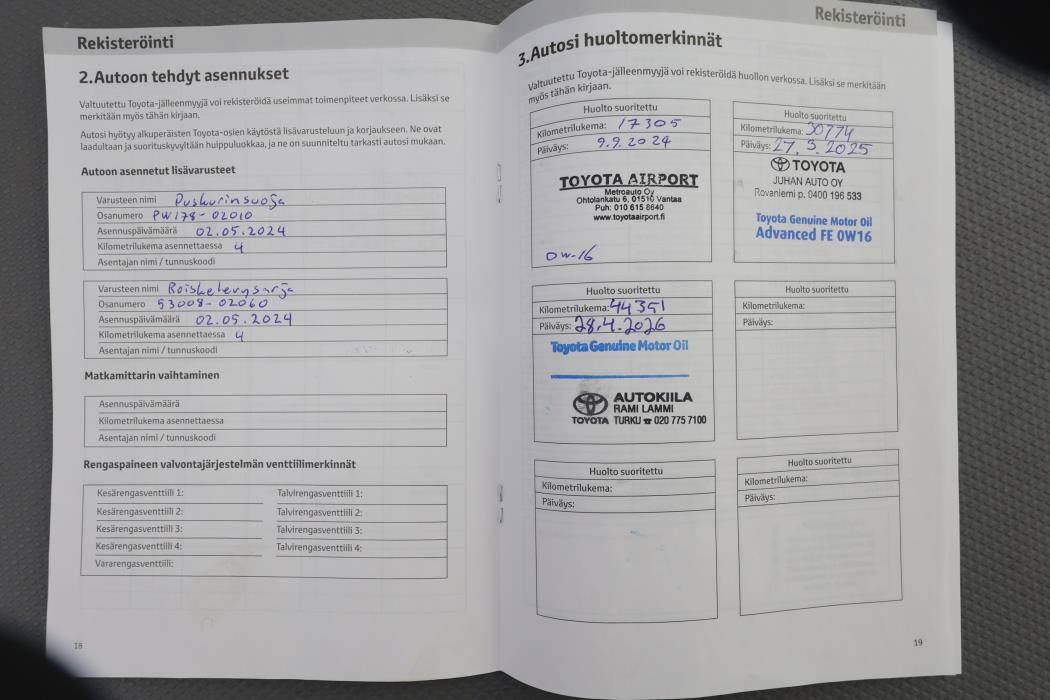 Rekisteröinti
2.Autoon tehdyt asennukset
Valtuutettu Toyota-jälleenmyyjä voi rekisteröidä useimmat toimenpiteet verkossa. Lisäksi se
merkitään myös tähän kirjaan.
Autosi hyötyy alkuperäisten Toyota-osien käytöstä lisävarusteluun ja korjaukseen. Ne ovat
laadultaan ja suorituskyvyltään huippuluokkaa, ja ne on suunniteltu tarkasti autosi mukaan.
Autoon asennetut lisävarusteet
Varusteen nimi Puskurinsuoja
Osanumero PW178-02010
Asennuspäivämäärä 02.05.2024
Kilometrilukema asennettaessa 4
Asentajan nimi / tunnuskoodi
Varusteen nimi Roiskelevysarja
Osanumero 53008-02060
Asennuspäivämäärä 02.05.2024
Kilometrilukema asennettaessa 4
Asentajan nimi / tunnuskoodi
Matkamittarin vaihtaminen
Asennuspäivämäärä
Kilometrilukema asennettaessa
Asentajan nimi / tunnuskoodi
Rengaspaineen valvontajärjestelmän venttiilimerkinnät
Kesärengasventtiili 1: Talvirengasventtiili 1:
Kesärengasventtiili 2: Talvirengasventtiili 2:
Kesärengasventtiili 3: Talvirengasventtiili 3:
Kesärengasventtiili 4: Talvirengasventtiili 4:
Vararengasventtiili:
18
Rekisteröinti
3.Autosi huoltomerkinnät
Valtuutettu Toyota-jälleenmyyjä voi rekisteröidä huollon verkossa. Lisäksi se merkitään
myös tähän kirjaan.
Huolto suoritettu
Kilometrilukema: 17305
Päiväys: 9.9.2024
TOYOTA AIRPORT
Metroauto Oy
Ohtolankatu 6, 01510 Vantaa
Puh: 010 615 8640
www.toyotaairport.fi
0W-16
Huolto suoritettu
Kilometrilukema: 30774
Päiväys: 27.3.2025
TOYOTA
JUHAN AUTO OY
Rovaniemi p. 0400 196 533
Toyota Genuine Motor Oil
Advanced FE 0W16
Huolto suoritettu
Kilometrilukema: 44351
Päiväys: 28.4.2026
Toyota Genuine Motor Oil
AUTOKIILA
RAMI LAMMI
TOYOTA TURKU ☎ 020 775 7100
Huolto suoritettu
Kilometrilukema:
Päiväys:
Huolto suoritettu
Kilometrilukema:
Päiväys:
Huolto suoritettu
Kilometrilukema:
Päiväys:
19